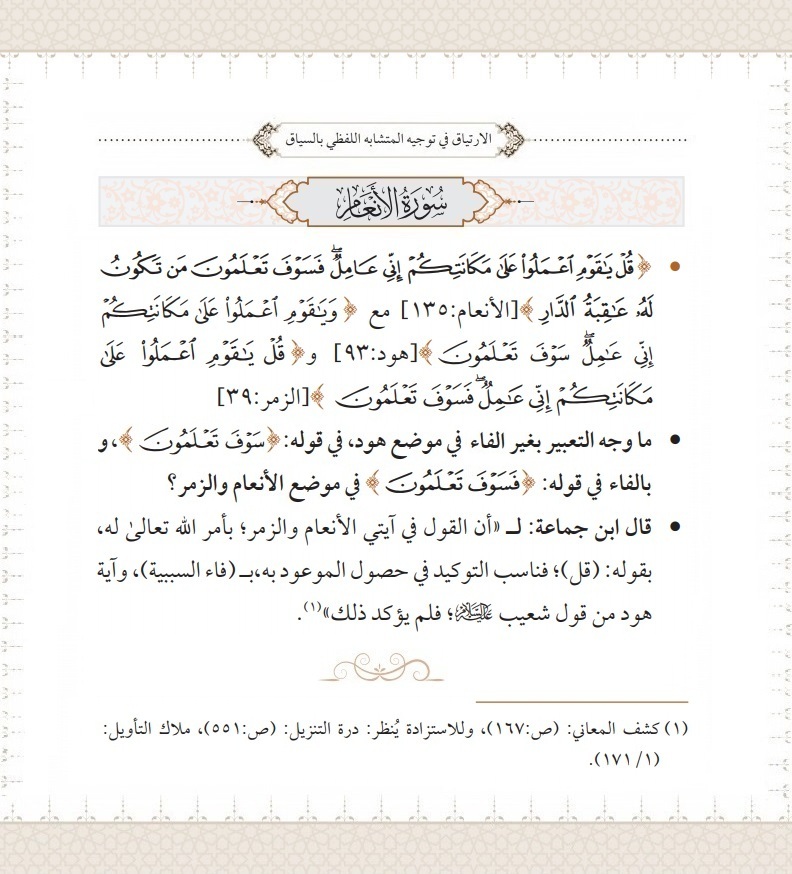 الارتياق في توجيه المتشابه اللفظي بالسياق
سُورَةُ الأَنْعَامِ
• ﴿ قُلْ يَٰقَوْمِ ٱعْمَلُوا۟ عَلَىٰ مَكَانَتِكُمْ إِنِّى عَامِلٌۖ فَسَوْفَ تَعْلَمُونَ مَن تَكُونُ
لَهُۥ عَٰقِبَةُ ٱلدَّارِ ﴾[الأنعام:١٣٥] مع ﴿ وَيَٰقَوْمِ ٱعْمَلُوا۟ عَلَىٰ مَكَانَتِكُمْ
إِنِّى عَٰمِلٌۖ سَوْفَ تَعْلَمُونَ ﴾[هود:٩٣] و﴿ قُلْ يَٰقَوْمِ ٱعْمَلُوا۟ عَلَىٰ
مَكَانَتِكُمْ إِنِّى عَٰمِلٌۖ فَسَوْفَ تَعْلَمُونَ ﴾[الزمر:٣٩]
• ما وجه التعبير بغير الفاء في موضع هود، في قوله: ﴿سَوْفَ تَعْلَمُونَ ﴾، و
بالفاء في قوله: ﴿فَسَوْفَ تَعْلَمُونَ ﴾ في موضع الأنعام والزمر؟
• قال ابن جماعة: لـ «أن القول في آيتي الأنعام والزمر؛ بأمر الله تعالىٰ له،
بقوله: (قل)؛ فناسب التوكيد في حصول الموعود به،بـ(فاء السببية)، وآية
هود من قول شعيب عليه السلام؛ فلم يؤكد ذلك»(١).
(١) كشف المعاني: (ص:١٦٧)، وللاستزادة يُنظر: درة التنزيل: (ص:٥٥١)، ملاك التأويل:
(١/ ١٧١).